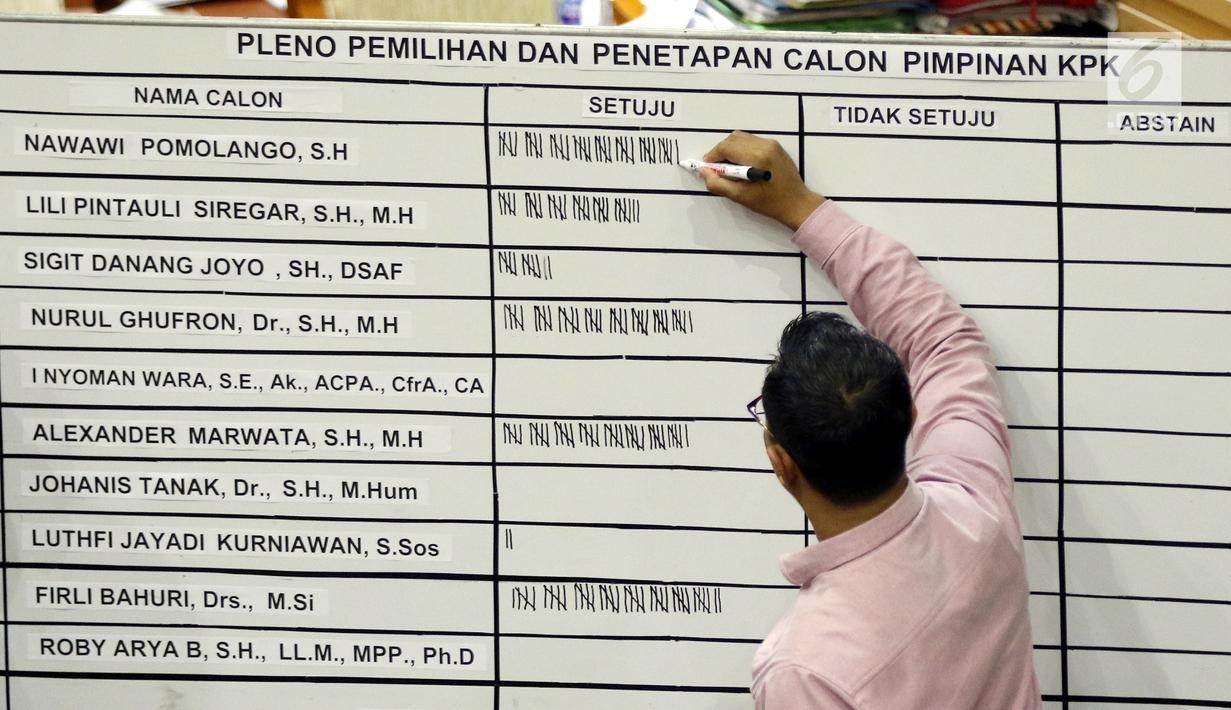 PLENO PEMILIHAN DAN PENETAPAN CALON PIMPINAN KPK
NAMA CALON SETUJU TIDAK SETUJU ABSTAIN
NAWAWI POMOLANGO, S.H
LILI PINTAULI SIREGAR, S.H., M.H
SIGIT DANANG JOYO , SH., DSAF
NURUL GHUFRON, Dr., S.H., M.H
I NYOMAN WARA, S.E., Ak., ACPA., CfrA., CA
ALEXANDER MARWATA, S.H., M.H
JOHANIS TANAK, Dr., S.H., M.Hum
LUTHFI JAYADI KURNIAWAN, S.Sos
FIRLI BAHURI, Drs., M.Si
ROBY ARYA B, S.H., LL.M., MPP., Ph.D